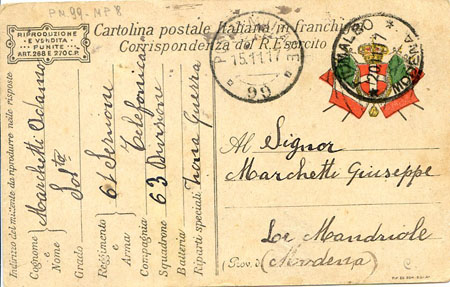 PM 99 - MP 8
RIPRODUZIONE
E VENDITA
PUNITE
ART. 268 E 270 C.P.
Cartolina postale Italiana in franchi
Corrispondenza del R. Esercito
15.11.17
99
MODENA
Indirizzo del mittente da riprodurre nelle risposte
Cognome Marchetti
e
Nome
Grado Sol.to
Reggimento 61 Sezione
e
Arma Telefonica
Compagnia
Squadrone 63 Divisione
Batteria
Riparti speciali Zona Guerra
Al Signor
Marchetti Giuseppe
Mandriole
(Prov. di Modena)